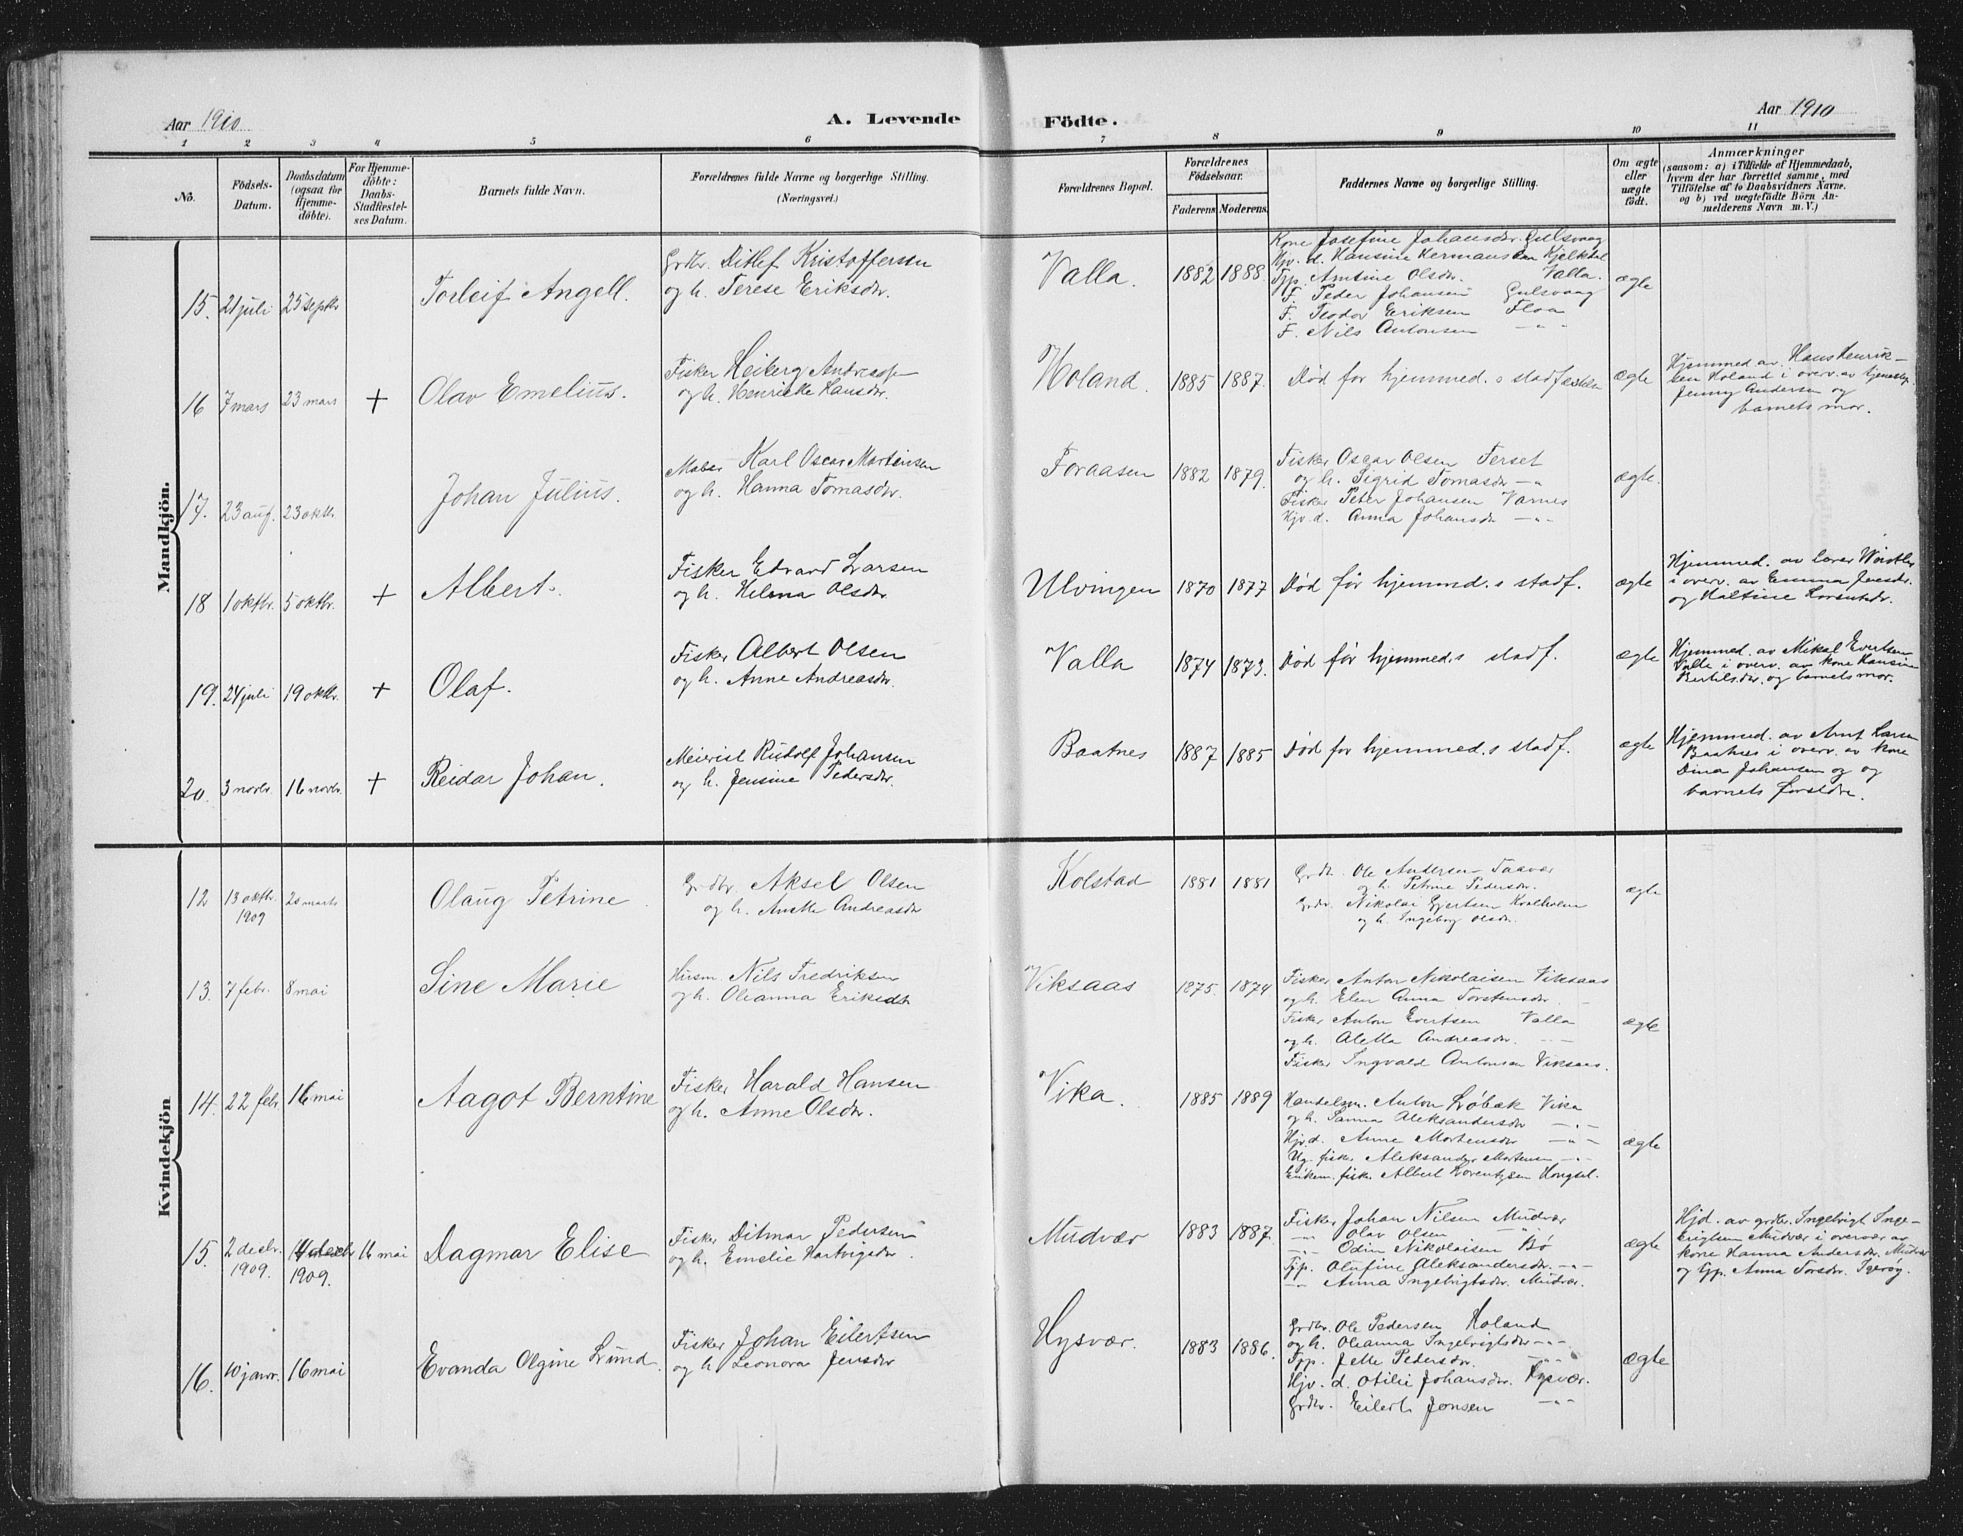 Aar 1910
A. Levende
Födte.
Aar 1910
1 2 3 4 5 6 7 8 9 10 11
No.
Födsels-
Datum.
Daabsdatum
(ogsaa for
Hjemme-
döbte).
For Hjemme-
döbte:
Daabs-
Stadfæstel-
ses Datum.
Barnets fulde Navn.
Forældrenes fulde Navne og borgerlige Stilling.
(Næringsvei.)
Forældrenes Bopæl.
Forældrenes
Födselsaar.
Faderens Moderens.
Faddernes Navne og borgerlige Stilling.
Om ægte
eller
uægte
födt.
Anmærkninger
(saasom: a) i Tilfælde af Hjemmedaab,
hvem der har forrettet samme, med
Tilföielse af to Daabsvidners Navne,
og b) ved uægtefödte Börn An-
melderens Navn m. V.)
Mandkjön.
15. 21 juli 25 septbr Torleif Angell.
Grdbr. Ditlef Kristoffersen
og h. Terese Eriksdr.
Valla. 1882 1888
Kone Josefine Johansdr. Gulsvaag
Hjv. d. Hansine Hermansen Kjelkdal
Tpp. Antine Olsdr. Valla.
F. Peder Johansen Gulsvaag
F. Teodor Eriksen Floa
F. Nils Antonsen -"-
ægte
16 7 mars 23 mars + Olav Emelius.
Fisker Heiberg
og h. Henrikke Hansdr.
Holand. 1885 1887.
Död for hjemmed.s stadfæstelse
ægte
Hjemmed. av Hans Henrik-
sen Holand i overv. av tjenestep.
Jenny Andersen og
barnets mor.
17. 23 aug. 23 oktbr Johan Julius.
Maler Karl Oscar Mortensen
og h. Hanna Tomasdr.
Foraasen 1882 1879.
Fisker Oscar Olsen Terset
og h. Sigrid Tomasdr -"-
Fisker Peter Johansen Varnes
Hjv. d. Anna Johansdr -"-
ægte.
18 1 oktbr. 5 oktbr. + Albert.
Fisker Edvard Larsen
og h. Helena Olsdr
Ulvingen 1870 1877
Död för hjemmed.s stadf.
ægte
Hjemmed. av Lærer
i overv. av Emma Jensdr.
og Haltine
19. 24 juli 19 oktbr. + Olaf.
Fisker Albert Olsen
og h. Anne Andreasdr.
Valla 1874 1873.
Död för hjemmed.s stadf.
ægte
Hjemmed. av Mikal Evertsen
Valle i overv. av kone Hansine
Bertilsdr. og barnets mor.
20. 3 novbr. 16 novbr. + Reidar Johan.
Meierist Rudolf Johansen
og h. Jensine Pedersdr.
Baatnes 1887 1885
Död for hjemmed.s stadf.
ægte
Hjemmed. av Arnt Larsen
Baatnes i overv. av kone
Dina Johansen og og
barnets forældre.
Kvindekjön
12 13 oktbr. 1909 20 marts Olaug Petrine
Grdbr. Aksel Olsen
og h. Anette Andreasdr
Kolstad 1881 1881
Grdb. Ole Andersen Taavær
og h. Petrine Pedersdr.
Grdbr. Nikolai Gjertsen Kvalholm
og h. Ingeborg Olsdr.
ægte
13. 7 febr. 8 mai Sine Marie
Husm Nils Fredriksen
og h. Oleanna Eriksdt
Viksaas 1875. 1874
Fisker Anton Nikolaisen Viksaas
og h. Elen Anna Torstensdr. -
Fisker Anton Evertsen Valla
og h. Aletta Andreasdr. -"-
Fisker Ingvald Antonsen Viksaas.
ægte
14. 22 febr 16 mai Aagot Berntine
Fisker Harald Hansen
og h. Anne Olsdr.
Vika. 1885 1889
Handelsm. Anton Löbak Vika
og h. Sanna Aleksandersdr -"-
Hjv. d. Anne Mortensdr -"-
Ug. fisk. Aleksander Mortensen -"-
Enkem. fisk. Albert Lorentzsen Hongsel.
ægte
15. 2 decbr. 1909. 14 decbr 1909. 16 mai Dagmar Elise
Fisker Ditmar Pedersen
og h. Emelie Hartvigsdr.
Mudvær 1883 1887.
Fisker Johan Nilsen Mudvær
-"- Olav Olsen
-"- Odin Nikolaisen Bö
Tpp. Olufine Aleksandersdr. -"-
-"- Anna Ingebrigtsdr. Mudvær.
ægte
Hjd. av grdbr. Ingebrigt Inge-
brigtsen Mudvær i overvær av
kone Hanna Andersdr. Mudvær
og Tpp. Anna Torsdr. Tjeröy.
16. 10 janr. 16 mai Evanda Olgine Lund.
Fisker Johan Eilertsen
og h Leonora Jensdr
Hysvær. 1883 1886.
Grdbr. Ole Pedersen Holand
og h. Oleanna Ingebrigtsdr -"-
Tpp. Jette Pedersdr. -"-
Hjv. d. Otilie Johansdr. Hysvær.
Grdbr. Eilert Jensen -"-
ægte